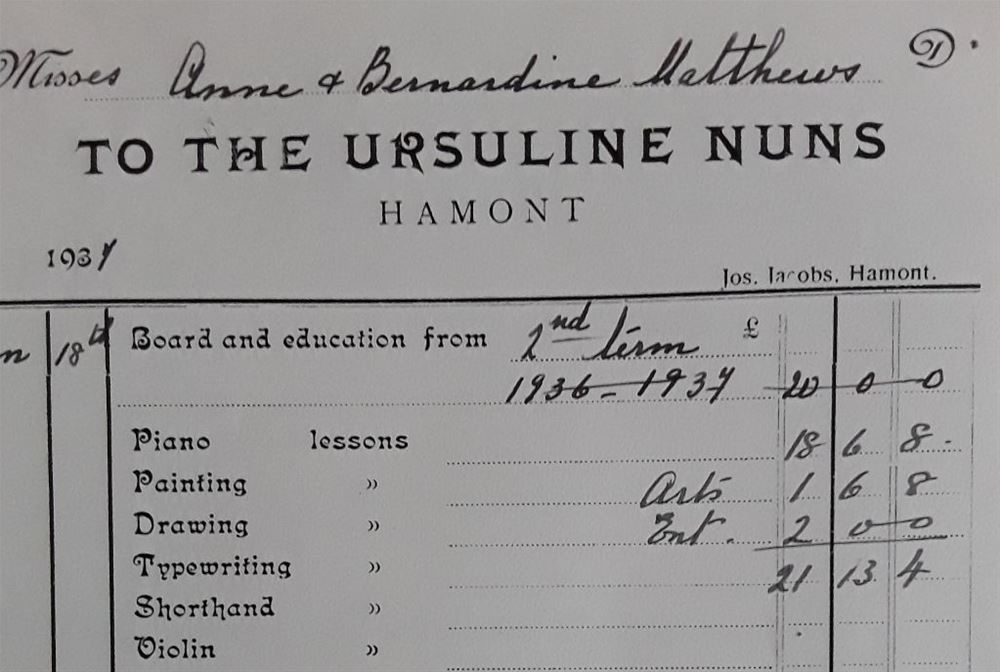 Misses Anne & Bernardine Matthews D.
TO THE URSULINE NUNS
HAMONT
1937
Jos. Jacobs, Hamont.
18th Board and education from 2nd term £
1936 - 1937 20 0 0
Piano lessons 18 6 8 -
Painting " Arts 1 6 8
Drawing " Ent. 2 0 0
Typewriting " 21 13 4
Shorthand "
Violin "